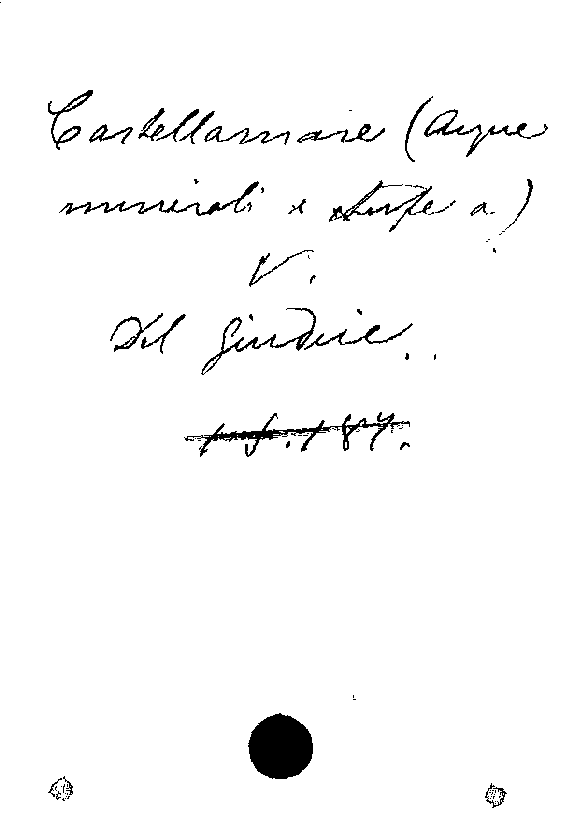 Castellamare (Acque
minerali e stufe a)
V.
Del Giudice.
15.187.